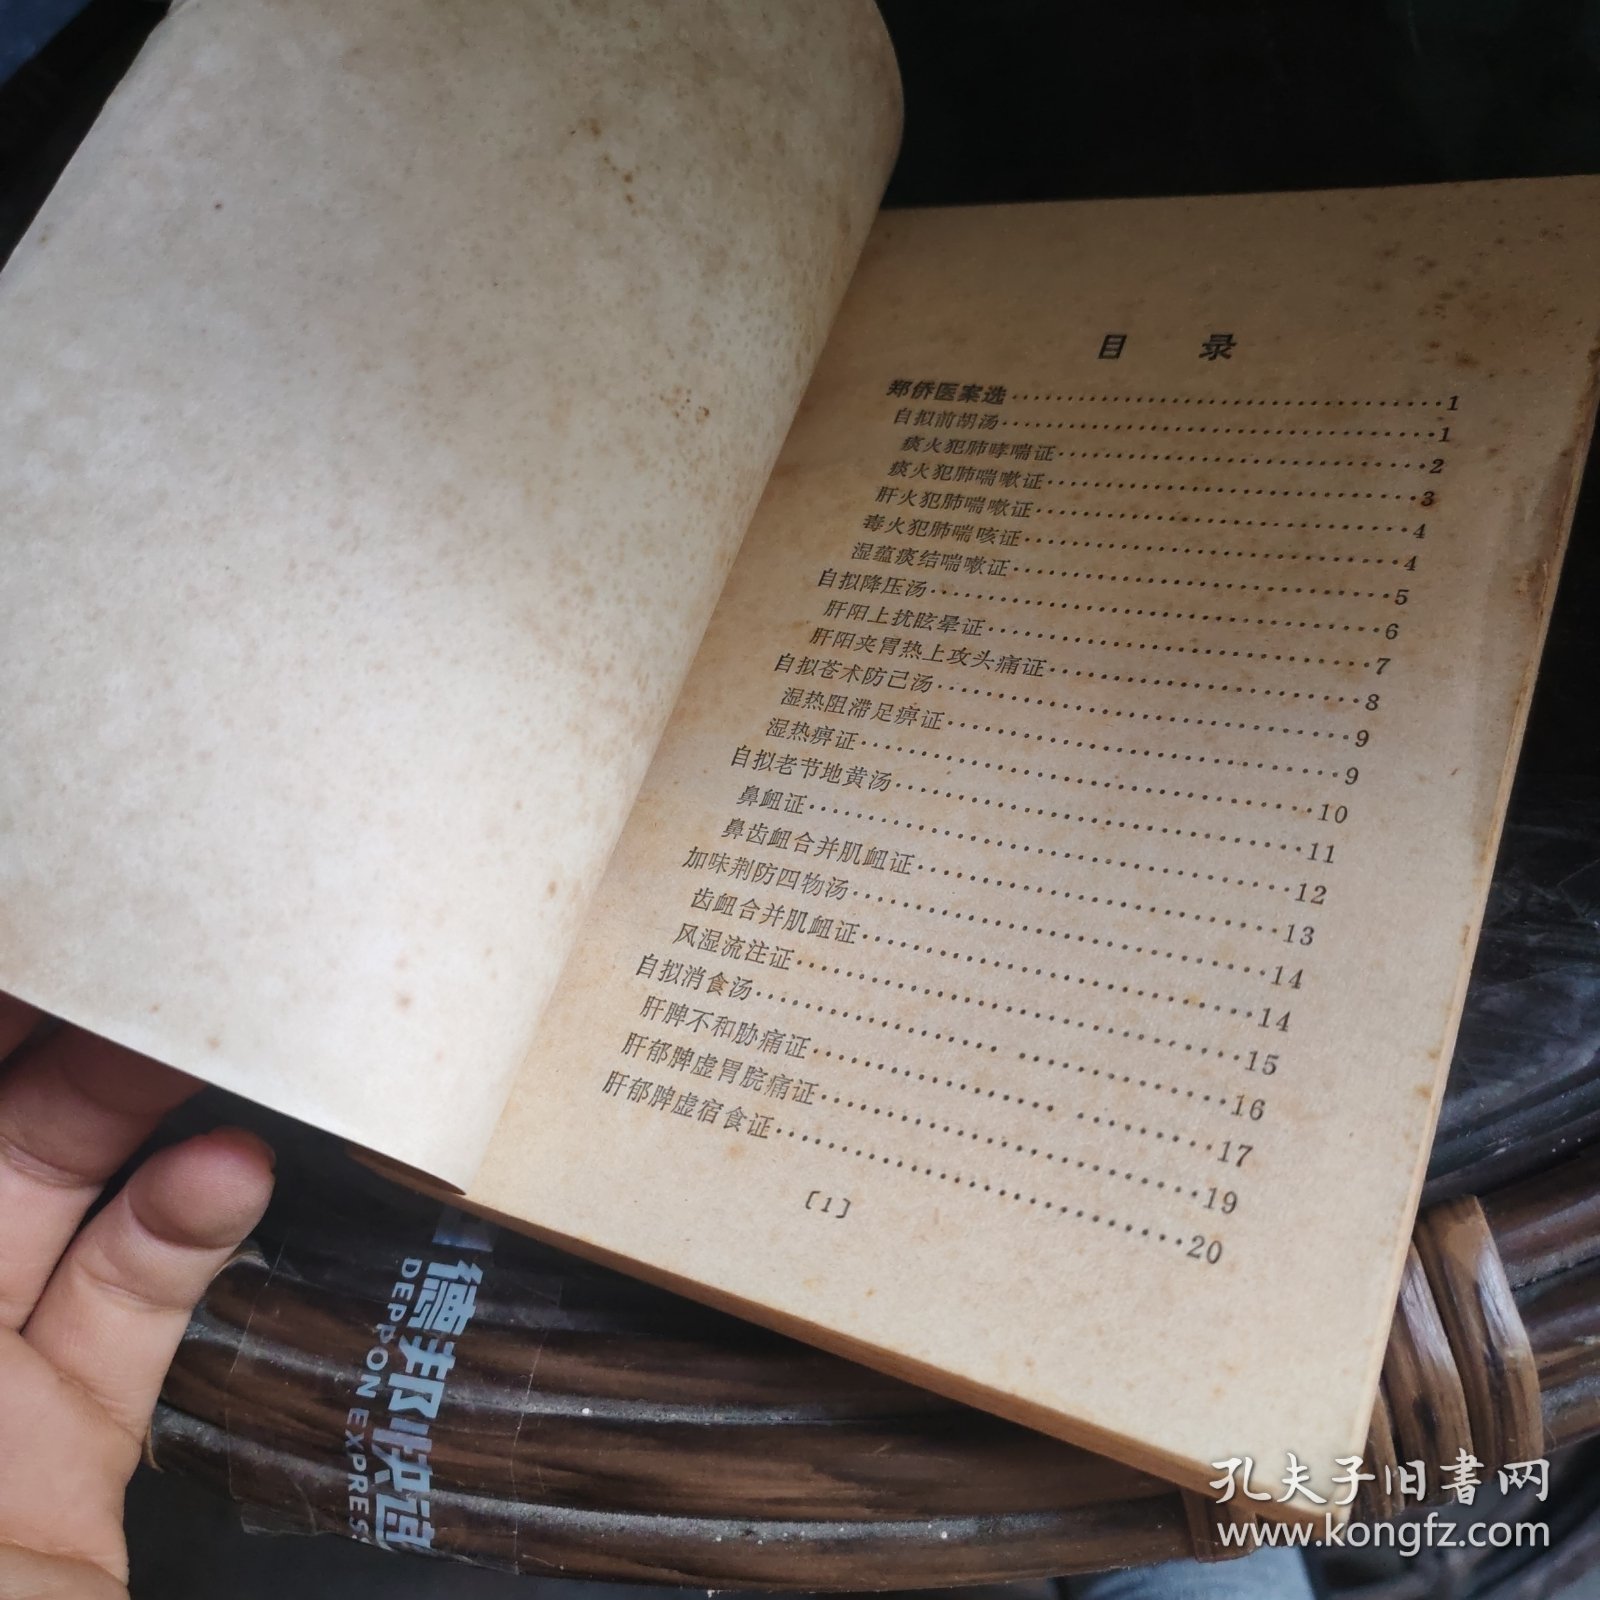 目 录
郑侨医案选……………………………………1
自拟前胡汤……………………………………1
痰火犯肺哮喘证………………………………2
痰火犯肺喘嗽证………………………………3
肝火犯肺喘嗽证………………………………4
毒火犯肺喘咳证………………………………4
湿蕴痰结喘嗽证………………………………5
自拟降压汤……………………………………6
肝阳上扰眩晕证………………………………7
肝阳夹胃热上攻头痛证………………………8
自拟苍术防己汤………………………………9
湿热阻滞足痹证………………………………9
湿热痹证………………………………………10
自拟老节地黄汤………………………………11
鼻衄证…………………………………………12
鼻齿衄合并肌衄证……………………………13
加味荆防四物汤………………………………14
齿衄合并肌衄证………………………………14
风湿流注证……………………………………15
自拟消食汤……………………………………16
肝脾不和胁痛证………………………………17
肝郁脾虚胃脘痛证……………………………19
肝郁脾虚宿食证………………………………20
〔1〕
德邦快递
DEPPON EXPRESS
孔夫子旧书网
www.kongfz.com